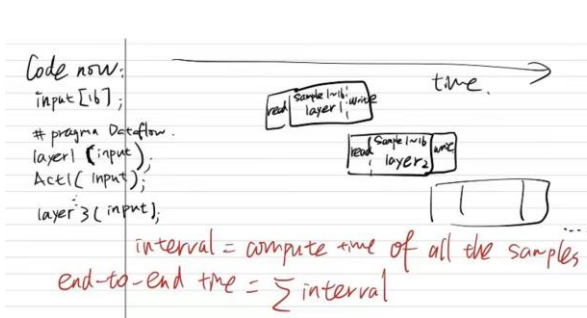 Code now:
input [16];
# pragma Dataflow.
layer1 (input);
Act1( input);
layer 3( input);
time.
read
sample 1~16
layer1
write
read
sample 1~16
layer2
write
...
interval = compute time of all the samples
end-to-end time = ∑ interval